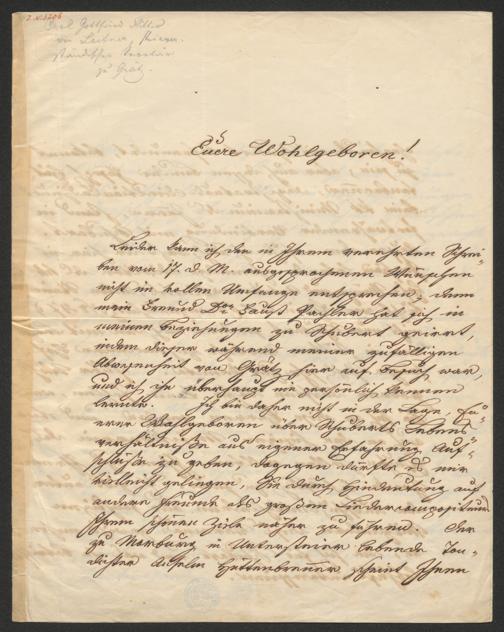 Karl Gottfried Ritter
von Leitner, steierm.
ständischer Secretär
zu Grätz.
Euere Wohlgeboren!
Leider kann ich den in Ihrem verehrten Schrei-
ben vom 17. d. M. ausgesprochenen Wünschen
nicht im vollen Umfange entsprechen, denn
mein Freund Dr. Faust Pachler hat sich in
meinen Beziehungen zu Schubert geirrt,
indem dieser während meiner zufälligen
Abwesenheit von Grätz hier auf Besuch war,
und ich ihn überhaupt nie persönlich kennen
lernte. Ich bin daher nicht in der Lage, Eu-
erer Wohlgeboren über Schuberts Lebens-
verhältnisse aus eigener Erfahrung Auf-
schlüsse zu geben, dagegen dürfte es mir
vielleicht gelingen, Sie durch Hindeutung auf
andere Freunde des großen Liedercompositeurs
Ihrem schönen Ziele näher zu führen. Der
zu Marburg in Untersteier lebende Ton-
dichter Anselm Hüttenbrenner scheint Ihnen